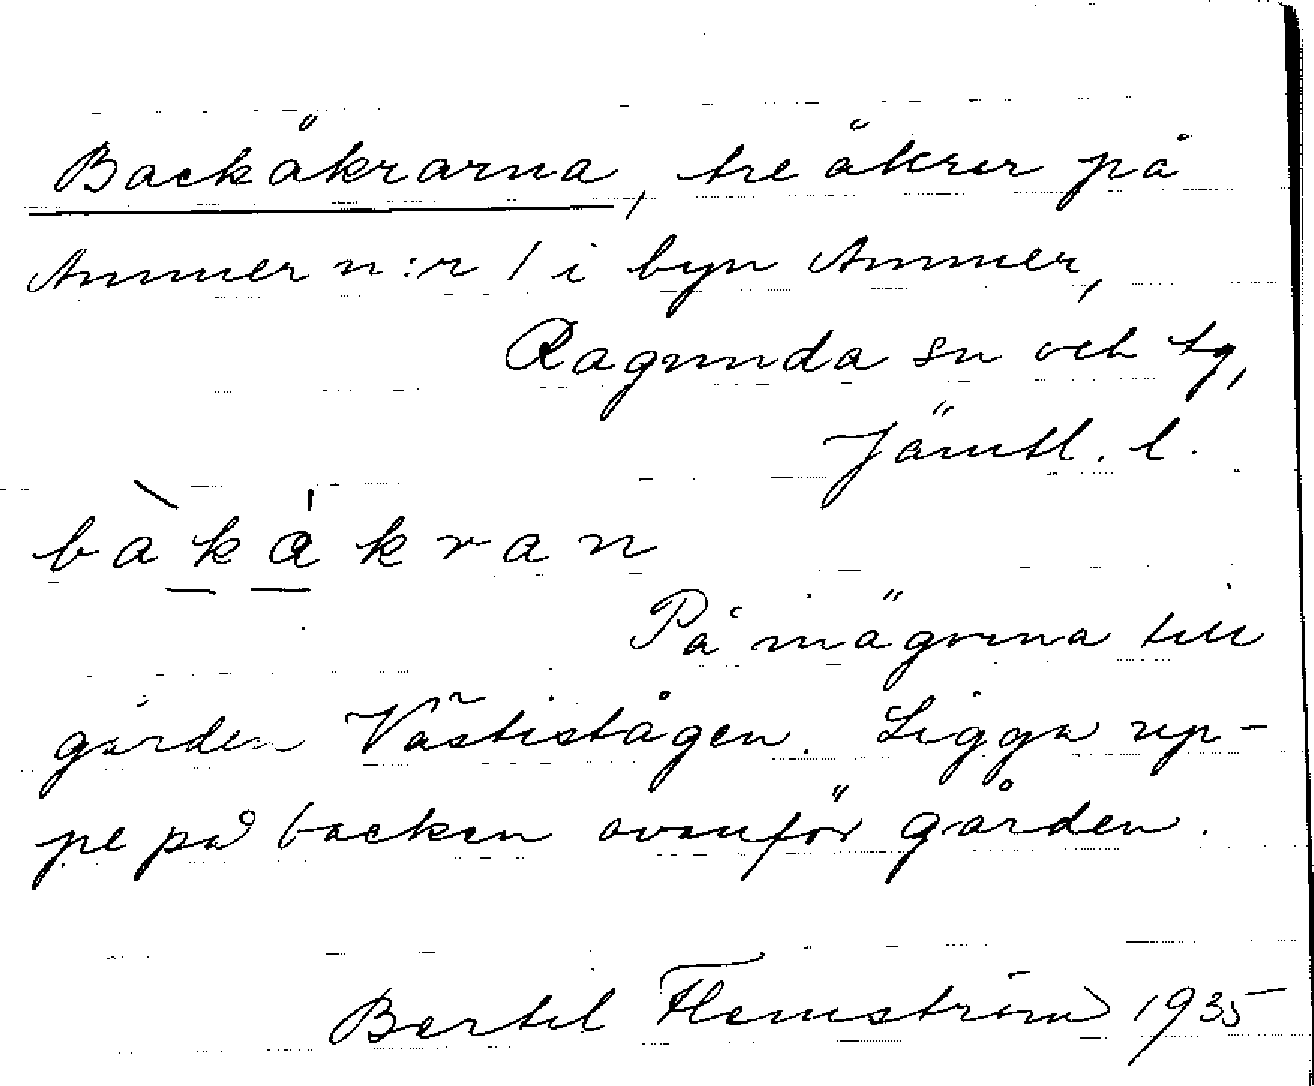 Backåkrarna, tre åkrer på
Ammer n:r 1 i byn Ammer,
Ragunda sn och tg,
Jämtl. l.
bàkåkran
På mägorna till
gården Västistågen. Ligga up-
pe på backen ovanför gården.
Bertil Flemström 1935